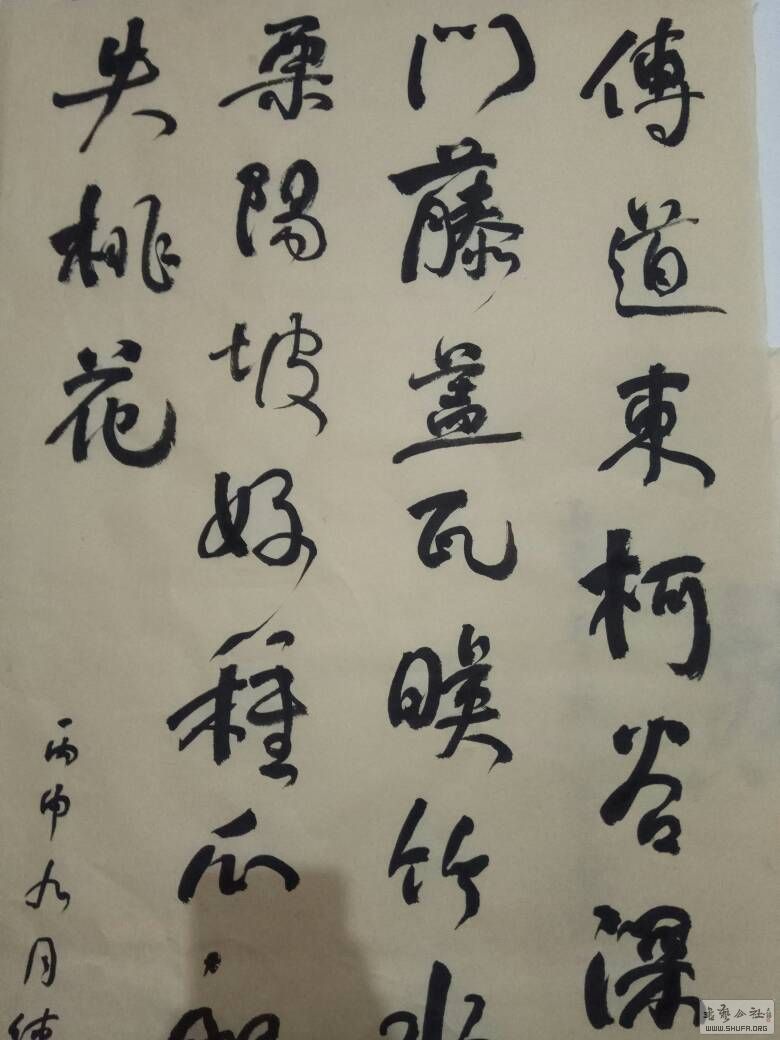 傅道東柯谷深
门藤盖瓦暎竹水
栗陽坡好種瓜
失桃花
丙申九月
WWW.SHUFA.ORG